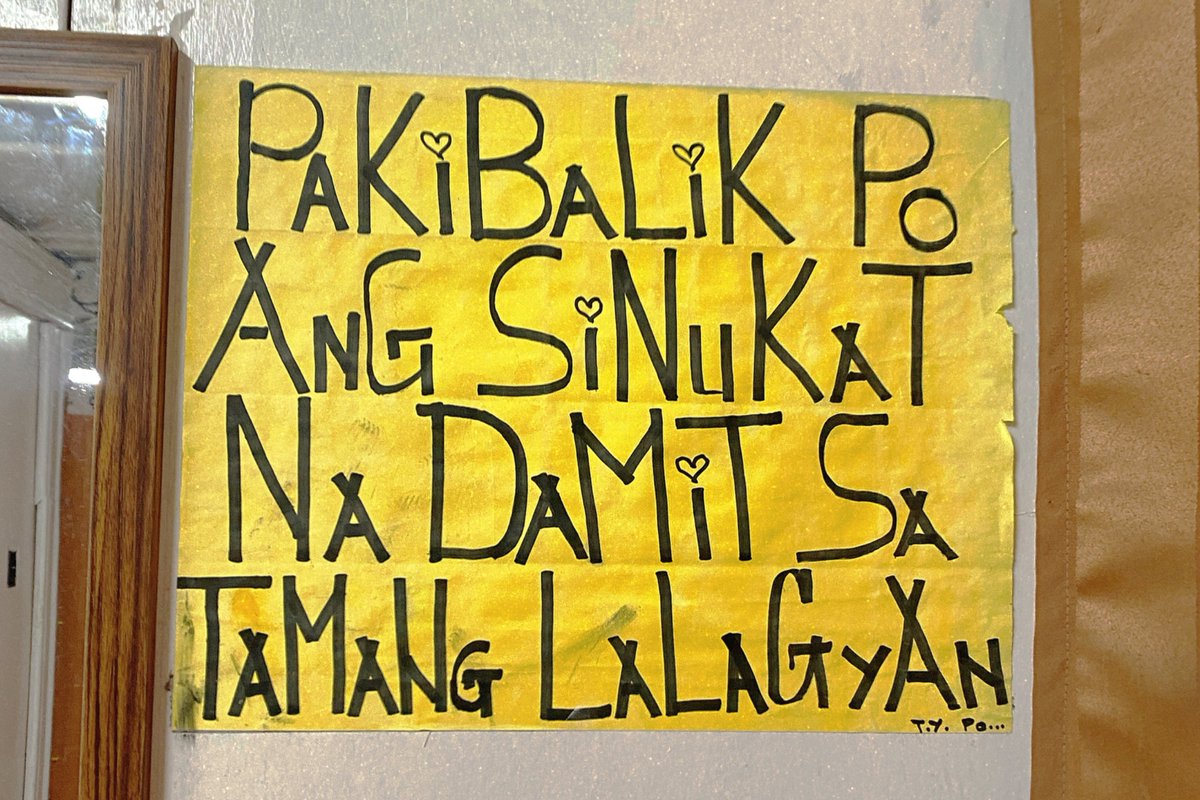 PaKiBaLiK Po
AnG SiNuKaT
Na DaMiT Sa
TaMaNG LaLaGyAN
T.Y. Po...